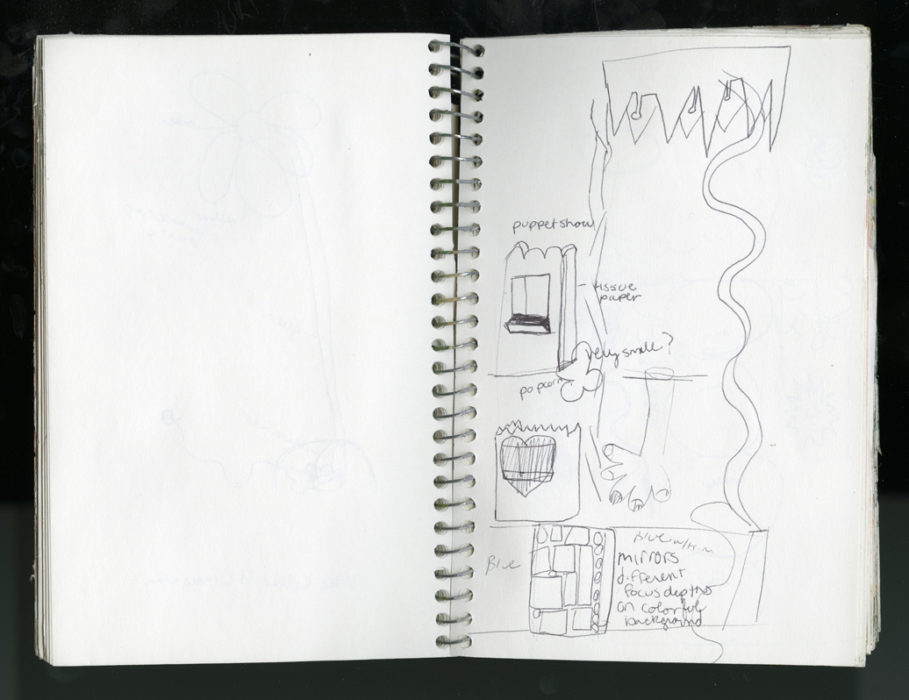 puppetshow
tissue
paper
small?
popcorn
Blue
mirrors
different
focus depths
on colorful
background